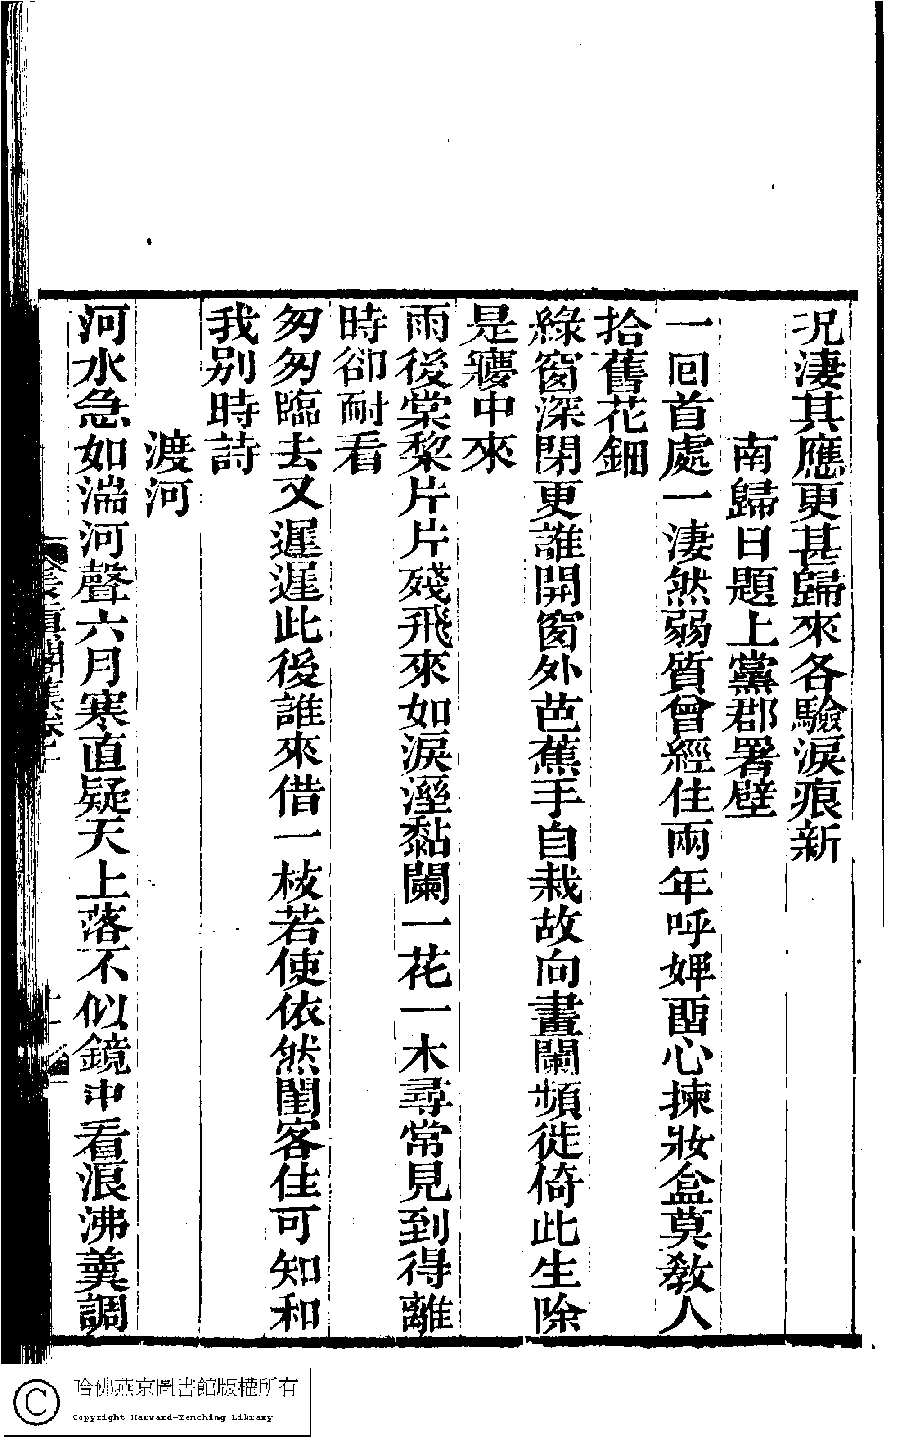 况淒其應更甚歸來各驗淚痕新
南歸日題上黨郡署壁
一回首處一淒然弱質曾經住兩年呼婢畱心揀妝盒莫教人
拾舊花鈿
綠窗深閉更誰開窗外芭蕉手自栽故向畫闌頻徙倚此生除
是㝱中來
雨後棠棃片片殘飛來如淚溼黏闌一花一木尋常見到得離
時卻耐看
匆匆臨去又遲遲此後誰來借一枝若使依然閨客住可知和
我别時詩
渡河
河水急如湍河聲六月寒直疑天上落不似鏡中看浪沸羹調
哈佛燕京圖書館版權所有
Copyright Harvard-Yenching Library